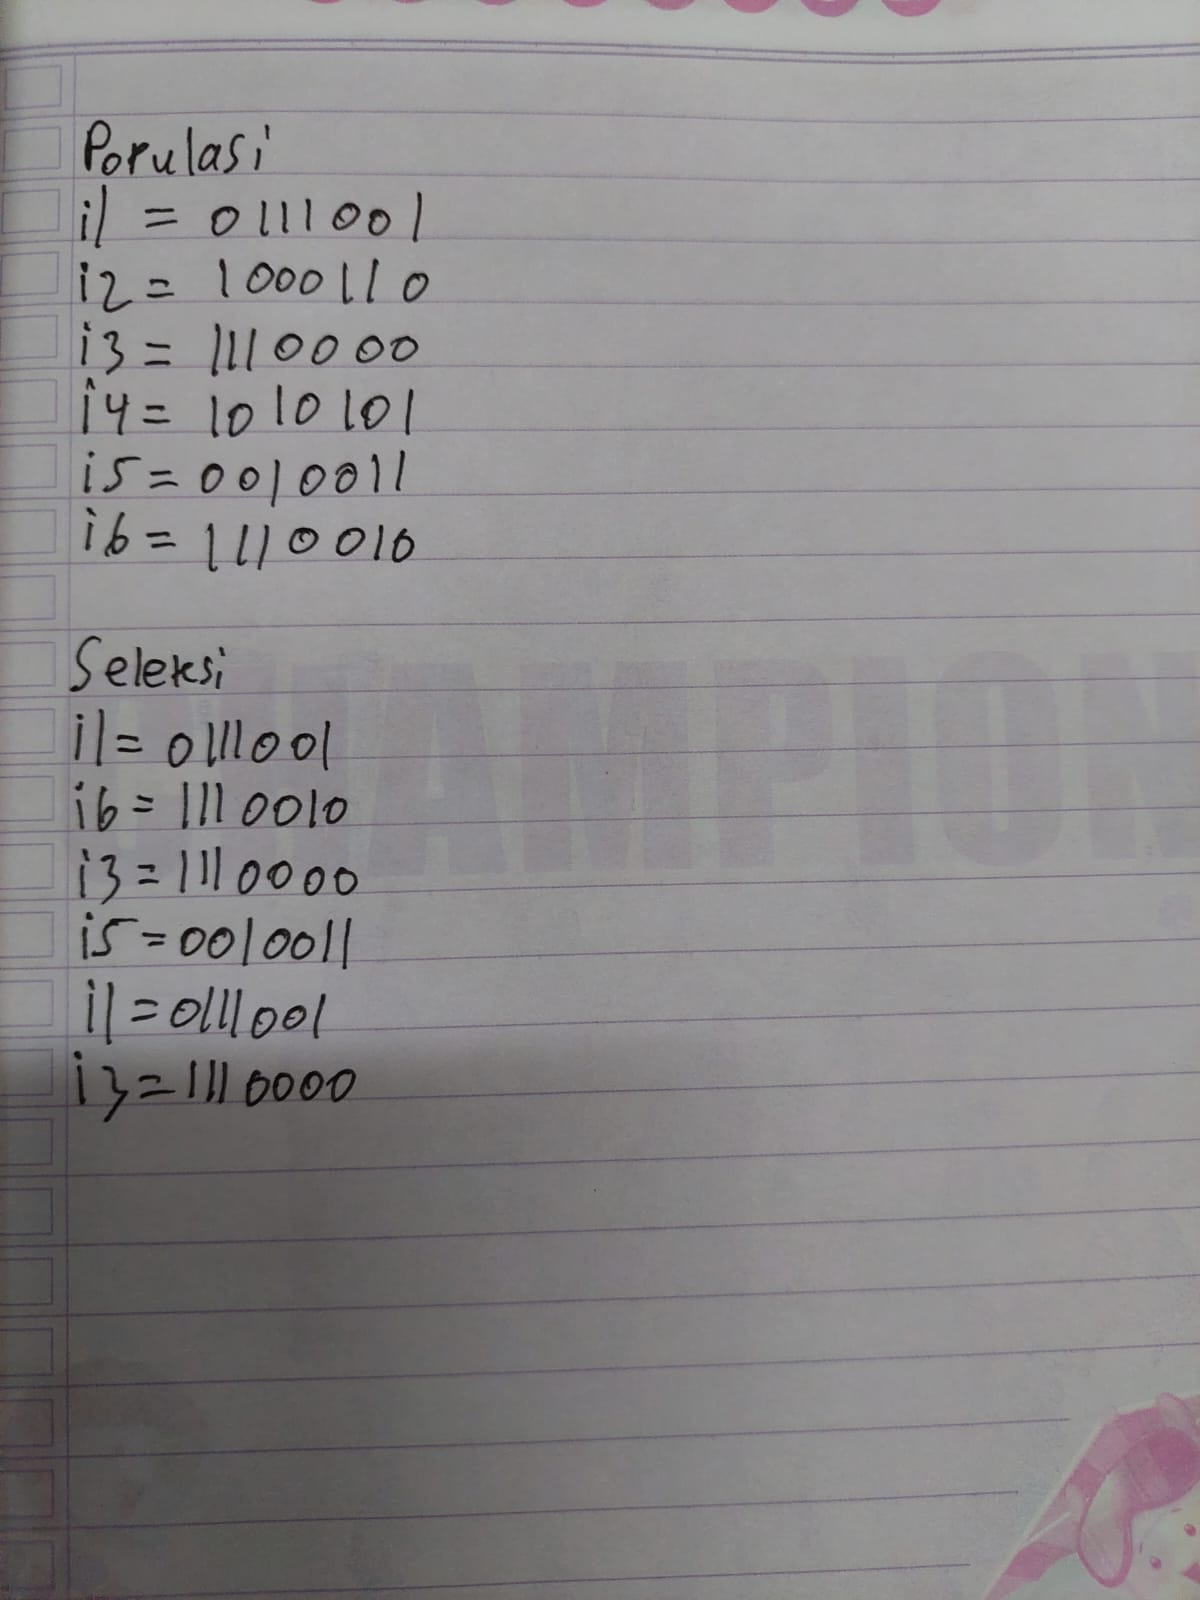 Populasi
i1 = 0111001
i2 = 1000110
i3 = 1110000
i4 = 1010101
i5 = 0010011
i6 = 1110010
Seleksi
i1 = 0111001
i6 = 1110010
i3 = 1110000
i5 = 0010011
i1 = 0111001
i3 = 1110000
CHAMPION